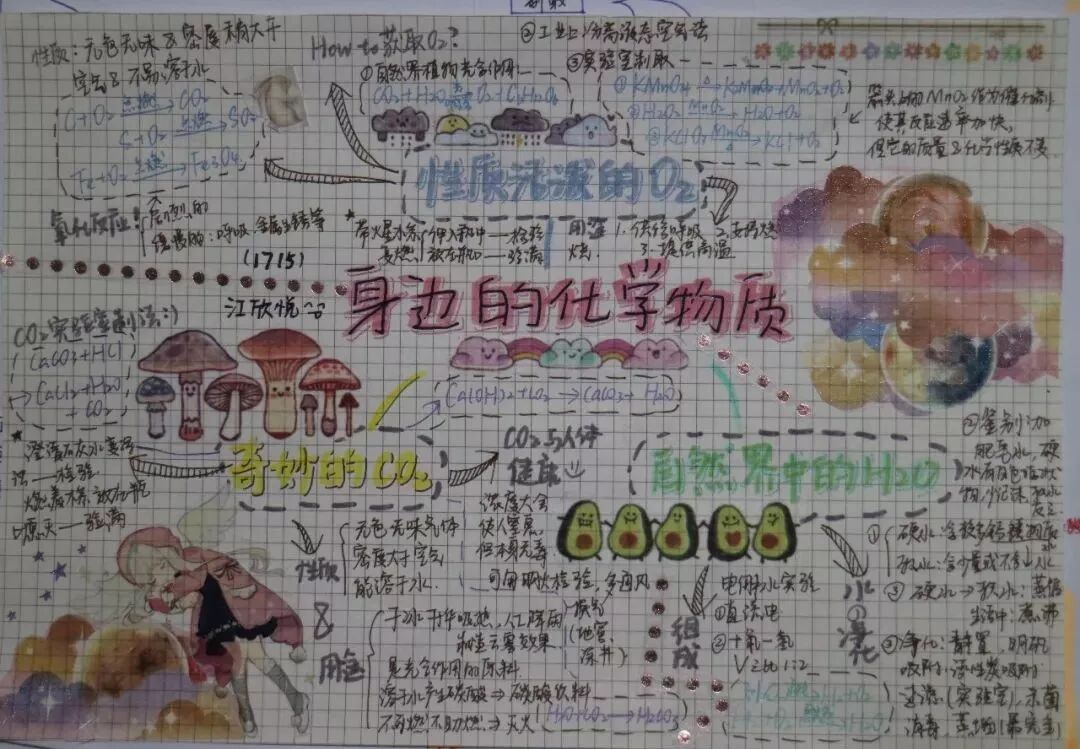 性质：无色无味&密度稍大于
空气&不易溶于水
C+O₂ 点燃→ CO₂
S+O₂ 点燃→ SO₂
Fe+O₂ 点燃→ Fe₃O₄
氧化反应！
剧烈的
缓慢的：呼吸、金属生锈等
(1715)
How to 获取O₂?
①自然界植物光合作用
②工业上 分离液态空气法
③实验室制取
①KMnO₄ △→ K₂MnO₄+MnO₂+O₂
②H₂O₂ MnO₂→ H₂O+O₂
③KClO₃ MnO₂→ KCl+O₂
使其反应速率加快，
但它的质量&化学性质不变
性质活泼的O₂
★带火星木条 伸入瓶中—检验
复燃 放在瓶口—验满
用途 1.供给呼吸 2.支持燃
烧 3.提供高温
身边的化学物质
江欣悦
CO₂实验室制法:)
CaCO₃+HCl
→CaCl₂+H₂O
+CO₂
★澄清石灰水变浑
浊—检验
燃着木条放在瓶
口熄灭—验满
Ca(OH)₂+CO₂→CaCO₃+H₂O
奇妙的CO₂
CO₂与人体
健康
浓度大会
使人窒息
但本身无毒
可用明火检验，多通风
性质
无色无味气体
密度大于空气
能溶于水
&
用途
干冰升华吸热，人工降雨
制造云雾效果
是光合作用的原料
溶于水产生碳酸⇒碳酸饮料
不可燃不助燃⇒灭火
H₂O+CO₂→H₂CO₃
自然界中的H₂O
②鉴别：加
肥皂水，硬
组成
电解水实验
①直流电
②+氧-氢
V之比 1:2
水净化
①硬水：含较多钙镁
软水：含少量或不含
③硬水→软水：蒸馏
生活中：煮沸
净化：静置，明矾
吸附：活性炭吸附
过滤(实验室)，杀菌
消毒，蒸馏(最完全)